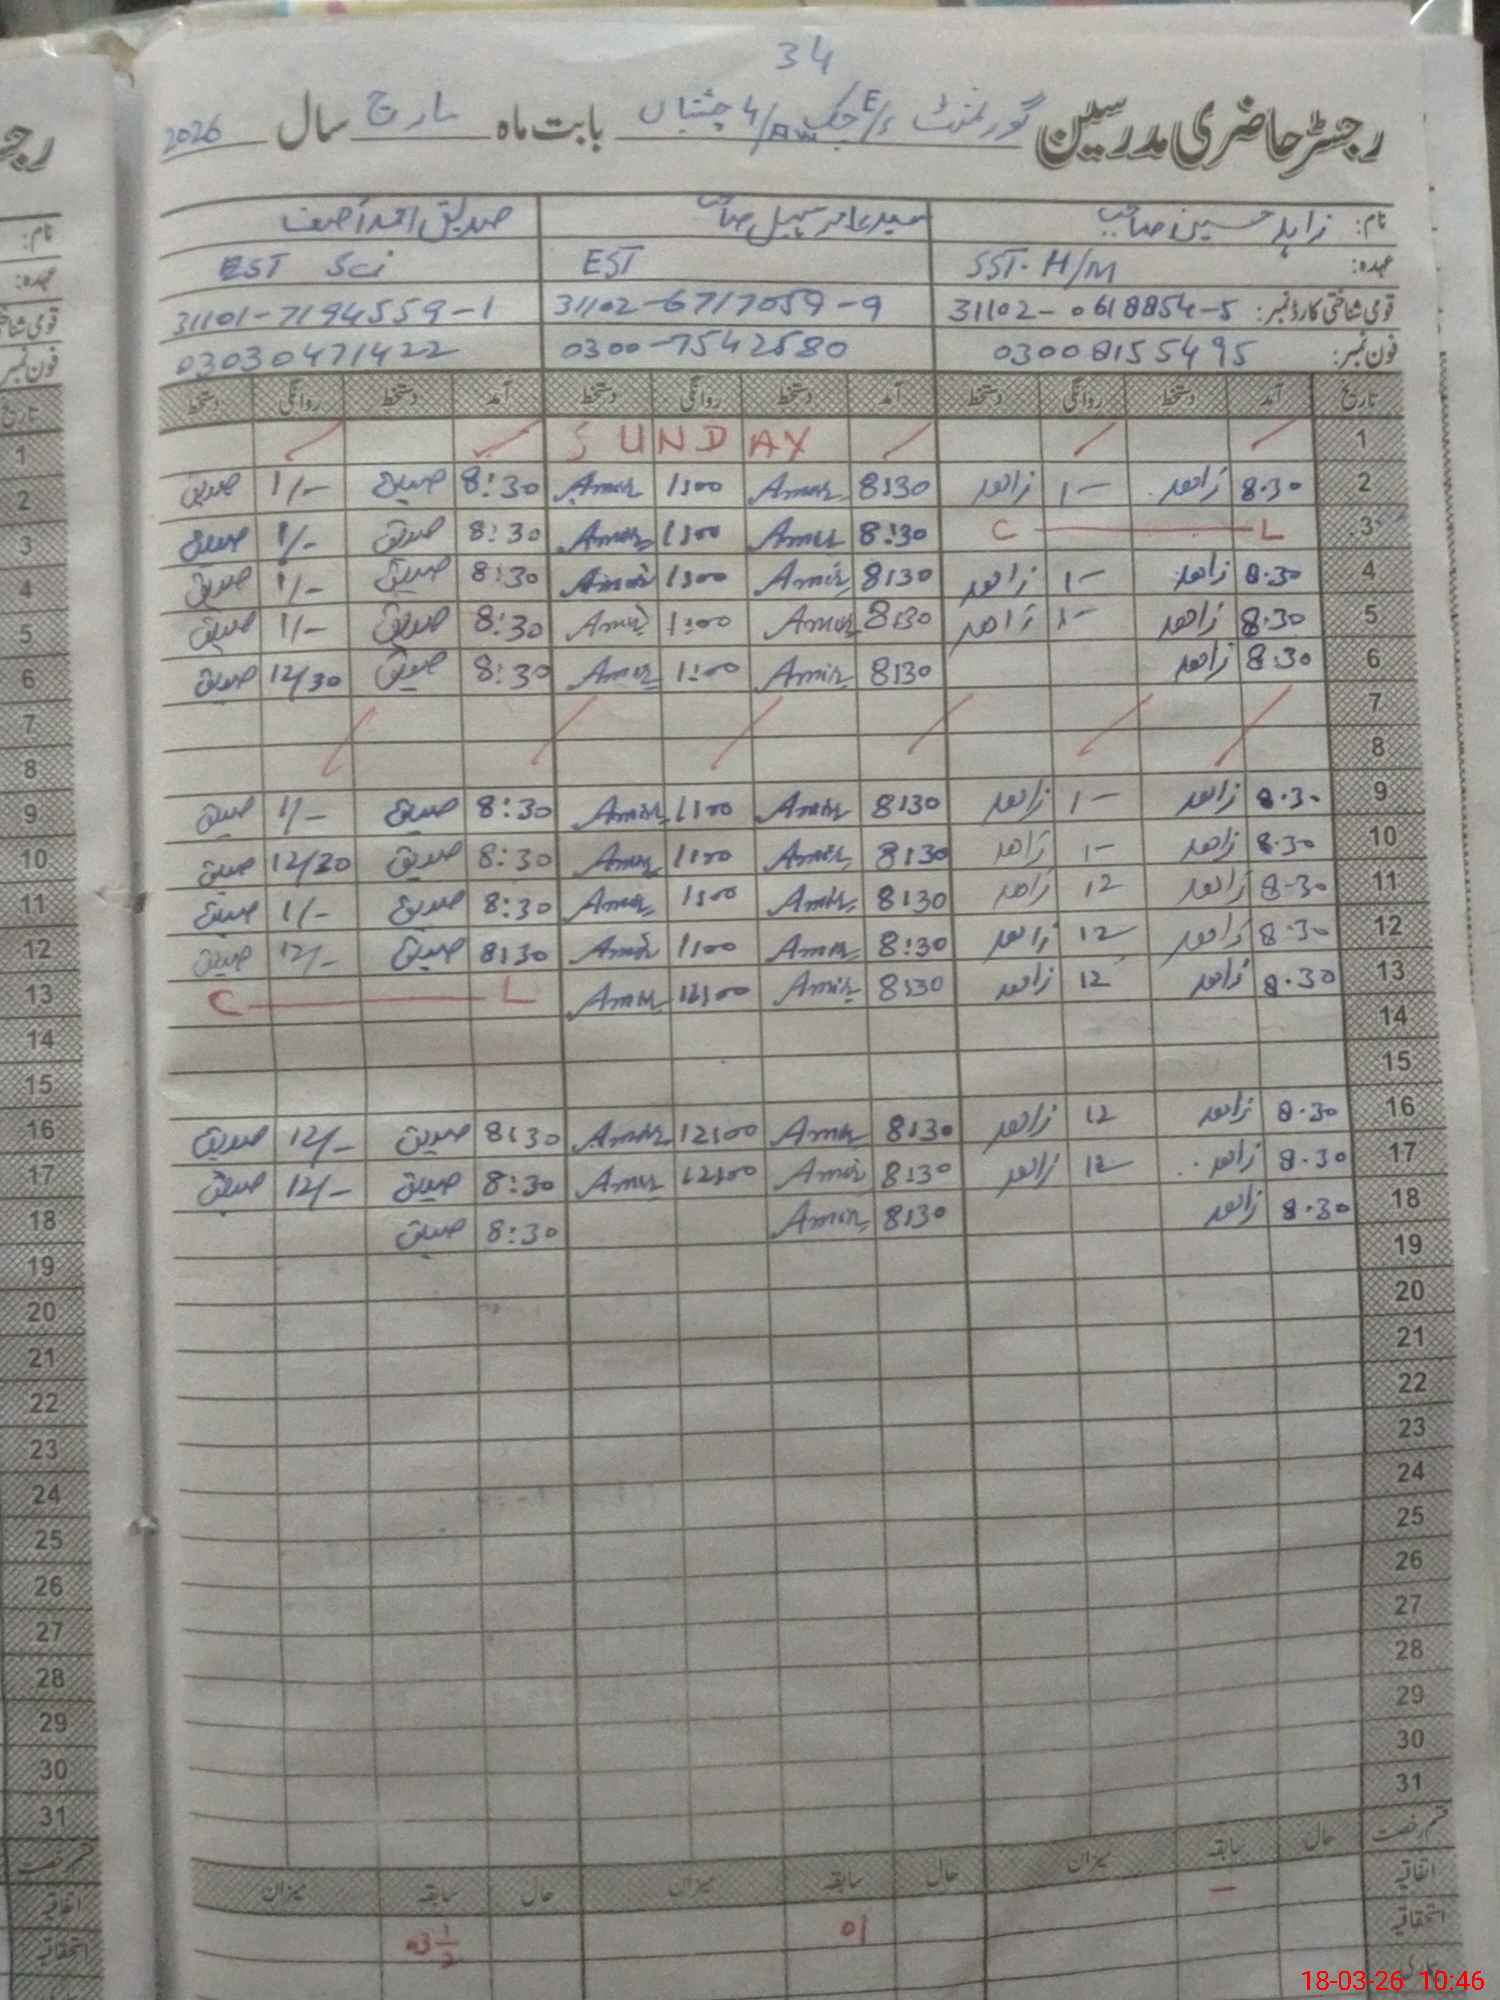 34
رجسٹر حاضری مدرسین گورنمنٹ E/S چک 4/AW چشتیاں بابت ماہ مارچ سال 2026
نام: زاہد حسین صاحب سید عامر سہیل صاحب صدیق احمد آصف
عہدہ: SST. H/M EST EST Sci
قومی شناختی کارڈ نمبر: 31102-0618854-5 31102-6717059-9 31101-7194559-1
فون نمبر: 03008155495 0300-7542580 03030471422
تاریخ آمد دستخط روانگی دستخط آمد دستخط روانگی دستخط آمد دستخط روانگی دستخط
1 SUNDAY
2 8.30 زاھد 1- زاھد 8:30 Amir 1:00 Amir 8:30 صدیق 1/- صدیق
3 C L 8:30 Amir 1:00 Amir 8:30 صدیق 1/- صدیق
4 8.30 زاھد 1- زاھد 8:30 Amir 1:00 Amir 8:30 صدیق 1/- صدیق
5 8.30 زاھد 1- زاھد 8:30 Amir 1:00 Amir 8:30 صدیق 1/- صدیق
6 8.30 زاھد 8:30 Amir 1:00 Amir 8:30 صدیق 12/30 صدیق
7
8
9 8.30 زاھد 1- زاھد 8:30 Amir 1:00 Amir 8:30 صدیق 1/- صدیق
10 8.30 زاھد 1- زاھد 8:30 Amir 1:00 Amir 8:30 صدیق 12/30 صدیق
11 8-30 زاھد 12 زاھد 8:30 Amir 1:00 Amir 8:30 صدیق 1/- صدیق
12 8.30 زاھد 12 زاھد 8:30 Amir 1:00 Amir 8:30 صدیق 12/- صدیق
13 8.30 زاھد 12 زاھد 8:30 Amir 12:00 Amir C L
14
15
16 8.30 زاھد 12 زاھد 8:30 Amir 12:00 Amir 8:30 صدیق 12/- صدیق
17 8.30 زاھد 12 زاھد 8:30 Amir 12:00 Amir 8:30 صدیق 12/- صدیق
18 8.30 زاھد 8:30 Amir 8:30 صدیق
19
20
21
22
23
24
25
26
27
28
29
30
31
قسم رخصت حال سابقہ میزان حال سابقہ میزان حال سابقہ میزان
اتفاقیہ - 01 03 1/2
استحقاقیہ
رجسٹر
نام:
عہدہ:
قومی شناختی
فون نمبر
تاریخ
1
2
3
4
5
6
7
8
9
10
11
12
13
14
15
16
17
18
19
20
21
22
23
24
25
26
27
28
29
30
31
قسم رخصت
اتفاقیہ
استحقاقیہ
18-03-26 10:46